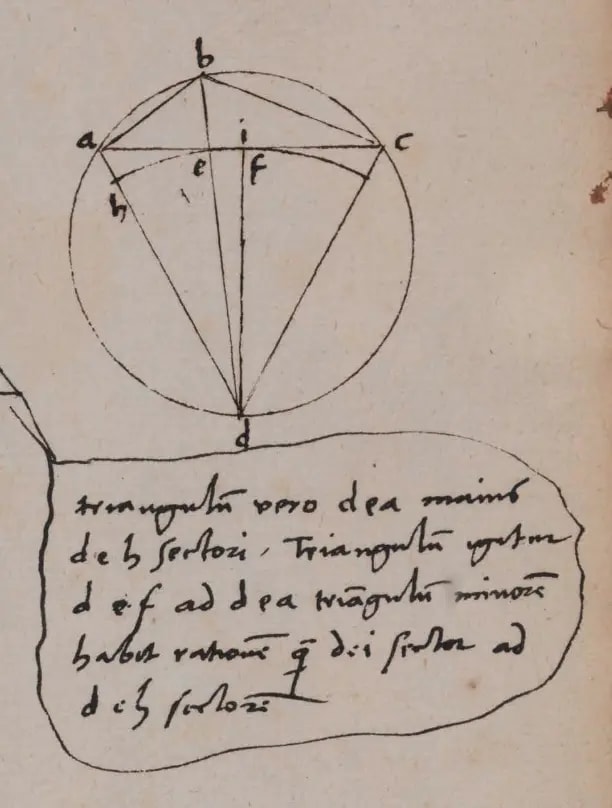 b
a i c
e f
h
d
triangulū vero dea maius
deh sectori. Triangulū igitur
def ad dea triāgulū minorē
habit rationē q̄ dei sector ad
deh sectorē